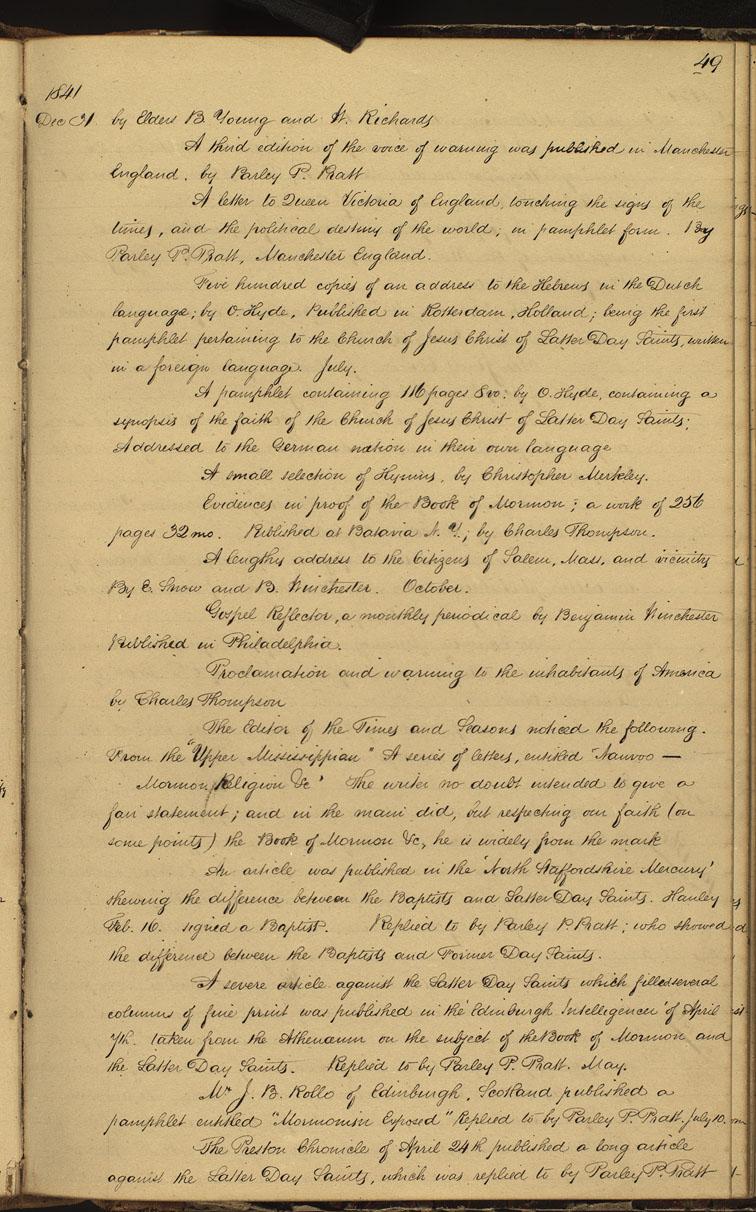 49
1841
Dec 31 by Elders B. Young and W. Richards
A third edition of the voice of warning was published in Manchester
England. by Parley P. Pratt
A letter to Queen Victoria of England, touching the signs of the
times, and the political destiny of the world; in pamphlet form. By
Parley P. Pratt, Manchester England.
Five hundred copies of an address to the Hebrews in the Dutch
language; by O. Hyde, Published in Rotterdam, Holland; being the first
pamphlet pertaining to the Church of Jesus Christ of Latter Day Saints, written
in a foreign language. July.
A pamphlet containing 116 pages 8vo: by O. Hyde, containing a
synopsis of the faith of the Church of Jesus Christ of Latter Day Saints;
Addressed to the German nation in their own language
A small selection of Hymns, by Christopher Merkley.
Evidences in proof of the Book of Mormon; a work of 256
pages 32mo. Published at Batavia N. Y.; by Charles Thompson.
A lengthy address to the Citizens of Salem, Mass, and vicinity
By E. Snow and B. Winchester. October.
Gospel Reflector, a monthly periodical by Benjamin Winchester
Published in Philadelphia.
Proclamation and warning to the inhabitants of America
by Charles Thompson
The Editor of the Times and Seasons noticed the following.
From the "Upper Mississippian" A series of letters, entitled "Nauvoo —
Mormon Religion &c" The writer no doubt intended to give a
fair statement; and in the main did, but respecting our faith (on
some points) the Book of Mormon &c, he is widely from the mark
An article was published in the 'North Staffordshire Mercury'
shewing the difference between the Baptists and Latter Day Saints. Hanley
Feb. 16. signed a Baptist. Replied to by Parley P. Pratt; who showed
the difference between the Baptists and Former Day Saints.
A severe article against the Latter Day Saints which filled several
columns of fine print was published in the 'Edinburgh Intelligencer' of April
7th. taken from the Athenæum on the subject of the Book of Mormon and
the Latter Day Saints. Replied to by Parley P. Pratt. May.
Mr J. B. Rollo of Edinburgh, Scotland published a
pamphlet entitled "Mormonism Exposed" Replied to by Parley P. Pratt. July 10.
The Preston Chronicle of April 24th published a long article
against the Latter Day Saints, which was replied to by Parley P. Pratt